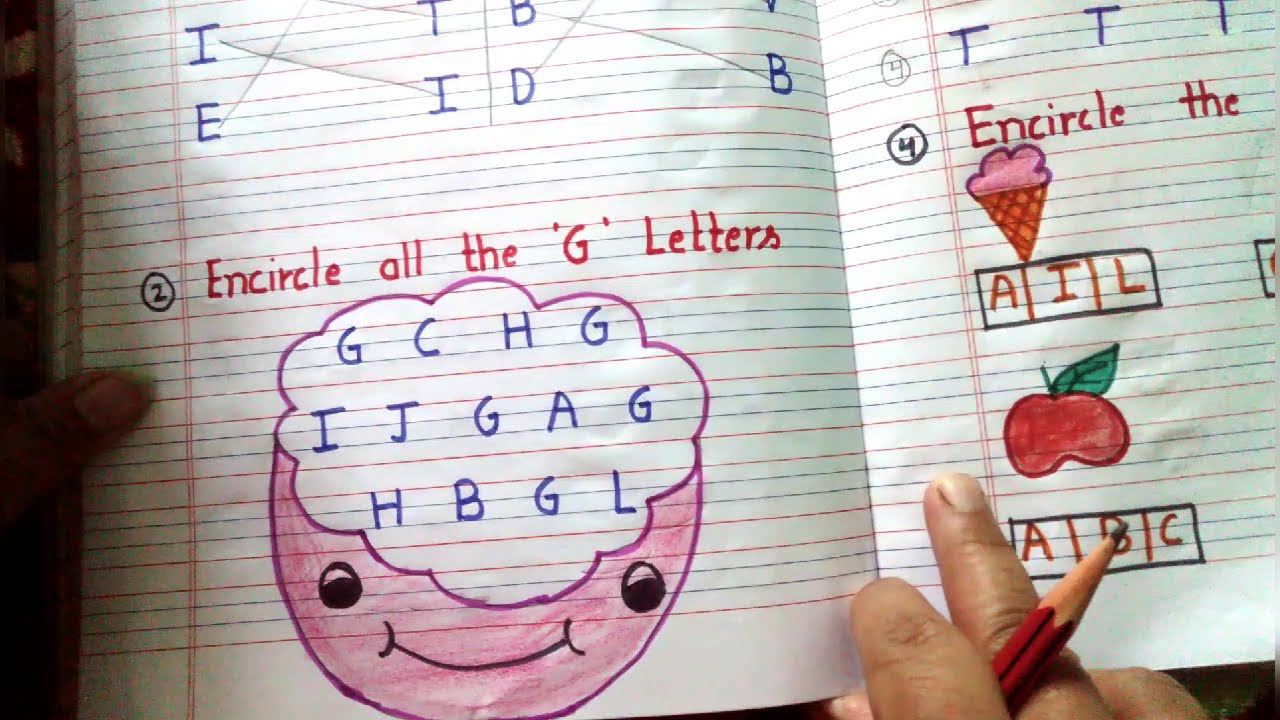 T B
I
I D B
E
② Encircle all the 'G' Letters
G C H G
I J G A G
H B G L
T T T
4
④ Encircle the
A I L
A B C